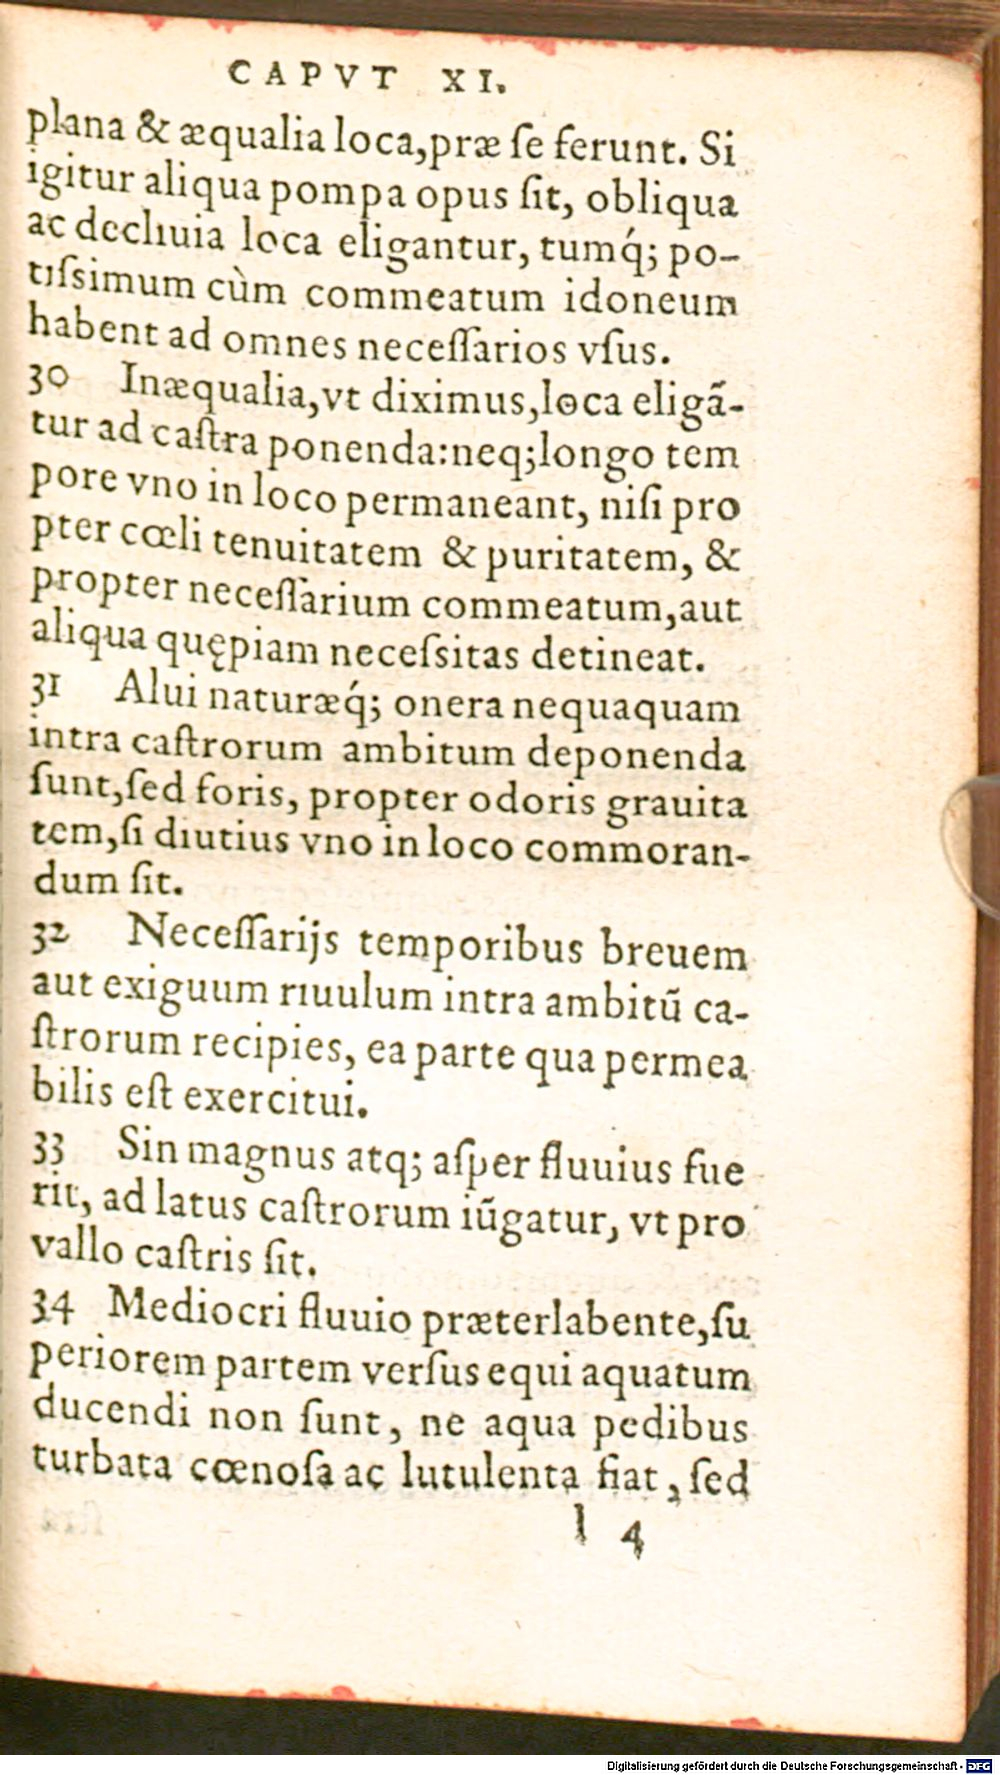 CAPVT XI.
plana & æqualia loca,præ ſe ferunt. Si
igitur aliqua pompa opus ſit, obliqua
ac decliuia loca eligantur, tumq́; po-
tiſsimum cùm commeatum idoneum
habent ad omnes neceſſarios vſus.
30 Inæqualia,vt diximus,loca eligã-
tur ad caſtra ponenda:neq;longo tem
pore vno in loco permaneant, niſi pro
pter cœli tenuitatem & puritatem, &
propter neceſſarium commeatum,aut
aliqua quępiam neceſsitas detineat.
31 Alui naturæq́; onera nequaquam
intra caſtrorum ambitum deponenda
ſunt,ſed foris, propter odoris grauita
tem,ſi diutius vno in loco commoran-
dum ſit.
32 Neceſſarijs temporibus breuem
aut exiguum riuulum intra ambitũ ca-
ſtrorum recipies, ea parte qua permea
bilis eſt exercitui.
33 Sin magnus atq; aſper fluuius fue
rit, ad latus caſtrorum iũgatur, vt pro
vallo caſtris ſit.
34 Mediocri fluuio præterlabente,ſu
periorem partem verſus equi aquatum
ducendi non ſunt, ne aqua pedibus
turbata cœnoſa ac lutulenta fiat, ſed
l 4
Digitalisierung gefördert durch die Deutsche Forschungsgemeinschaft - DFG